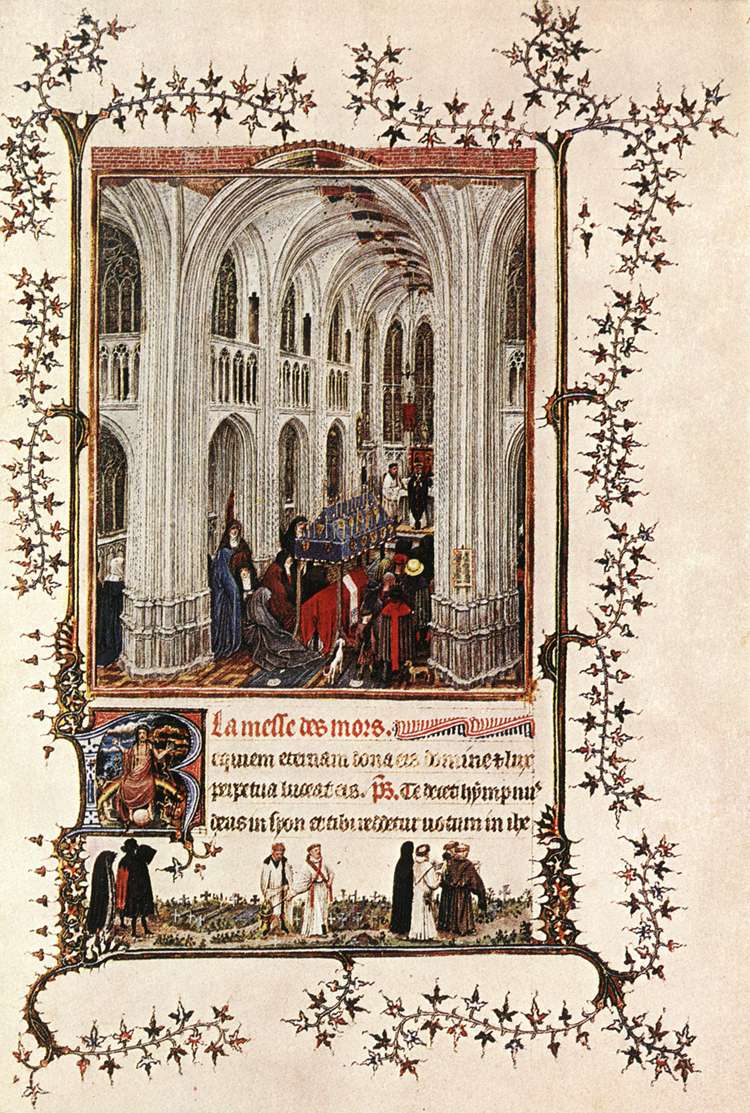 La messe des mors.
Requiem eternam dona eis domine et lux
perpetua luceat eis. ps. Te decet hympnus
deus in syon et tibi reddetur uotum in ihe